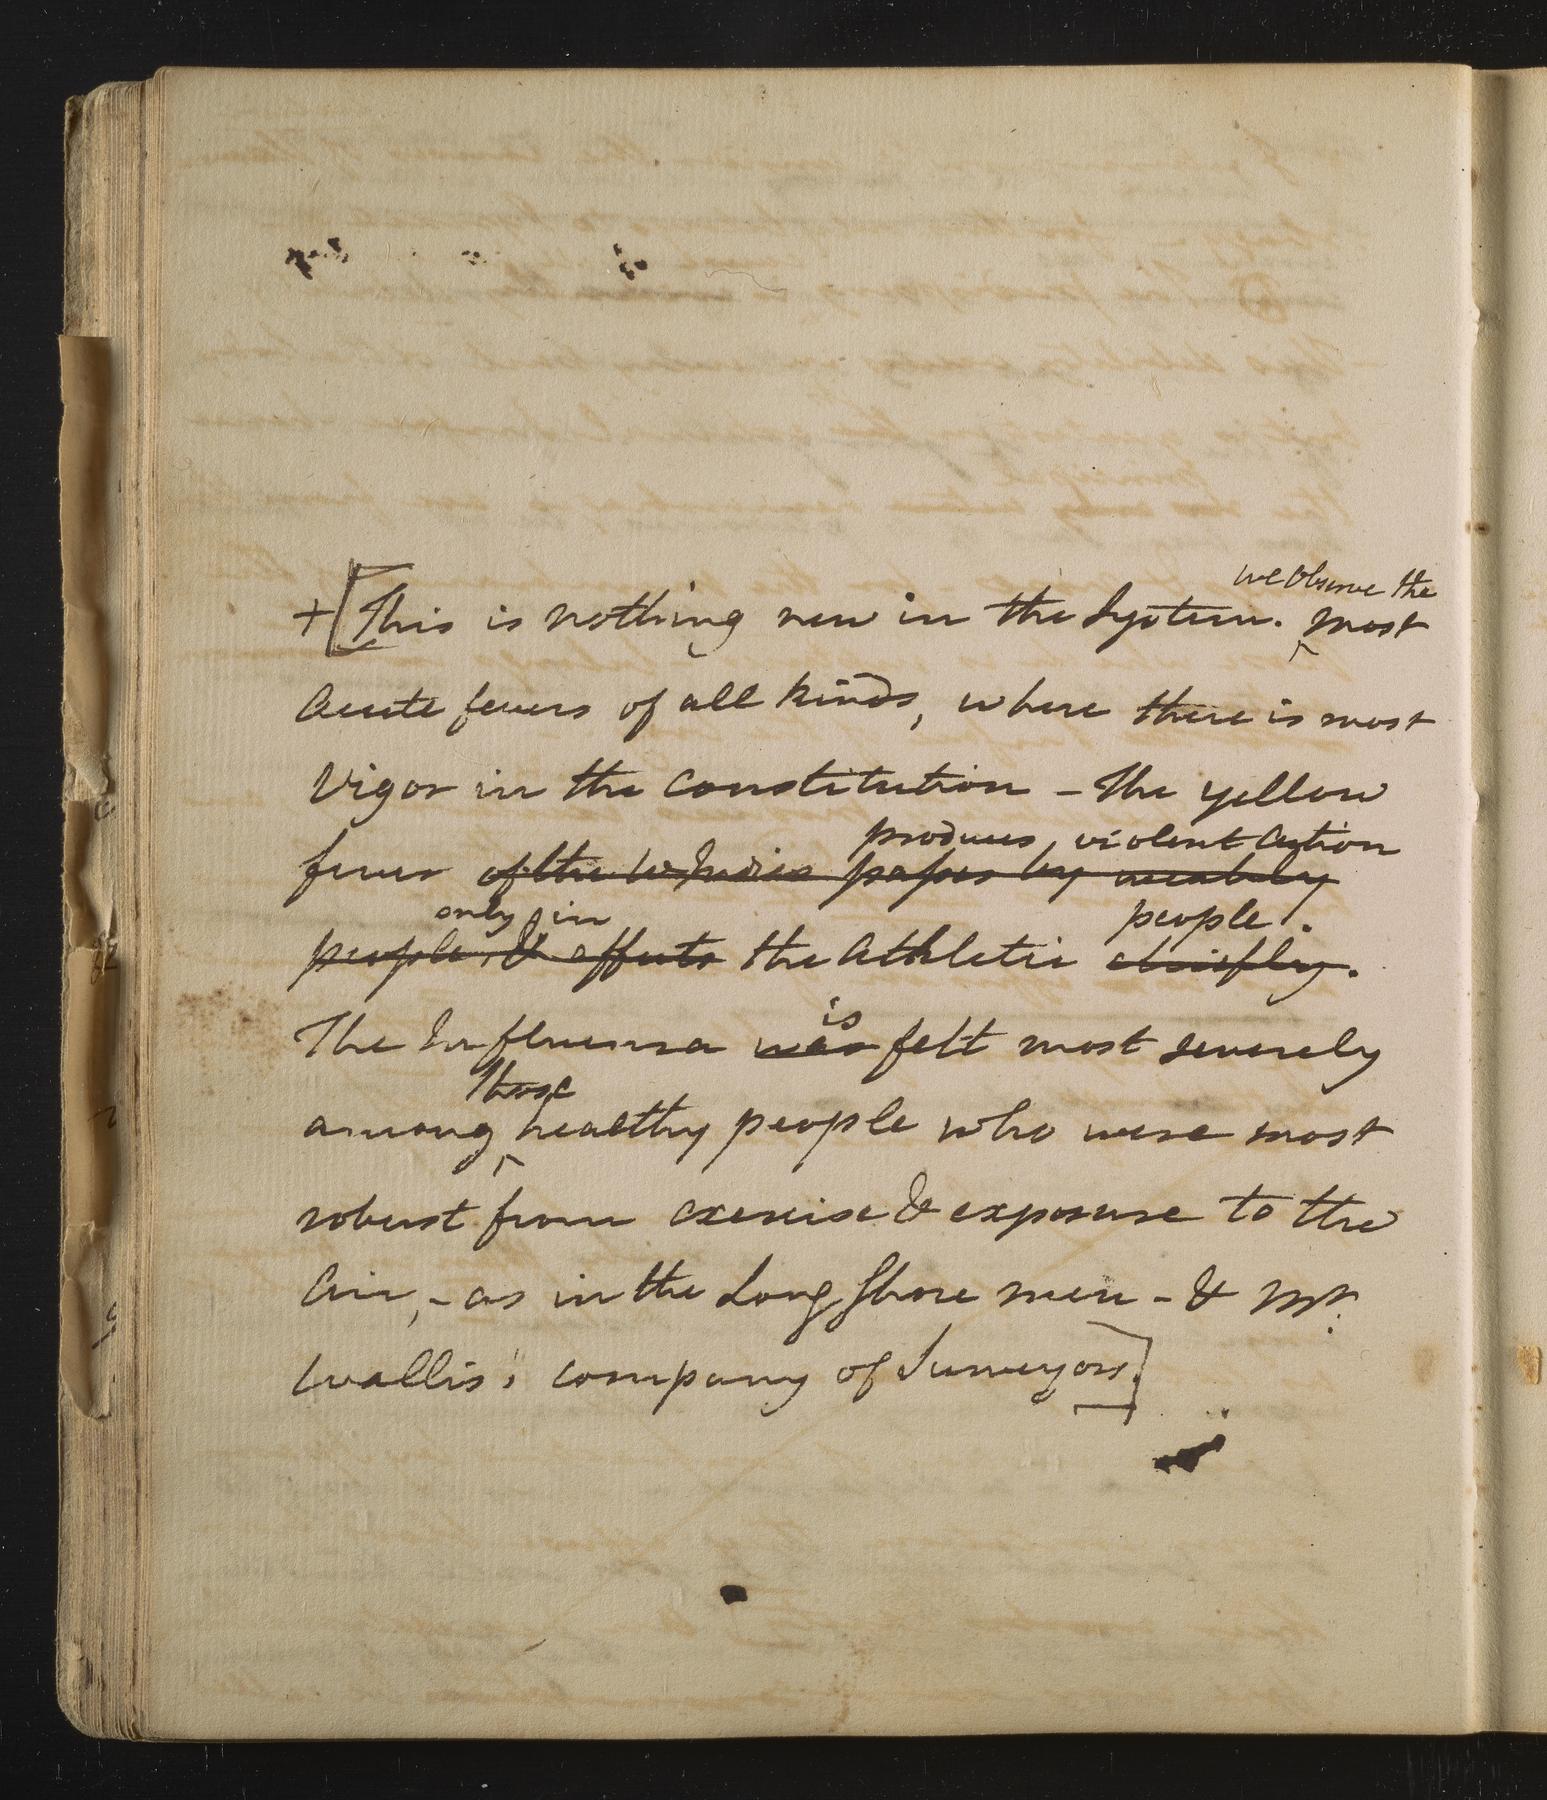 we observe the
+[This is nothing new in the System. ^ most
acute fevers of all kinds, where there is most
Vigor in the constitution – The yellow
produces violent action
fever of the West Indies passes by weakly
only in people.
people, & affects the athletic chiefly.
is
The Influenza was felt most severely
those
among ^ healthy people who were most
robust from exercise & exposure to the
Air, – as in the Long Shore men – & Mr.
Wallis's company of Surveyors.]